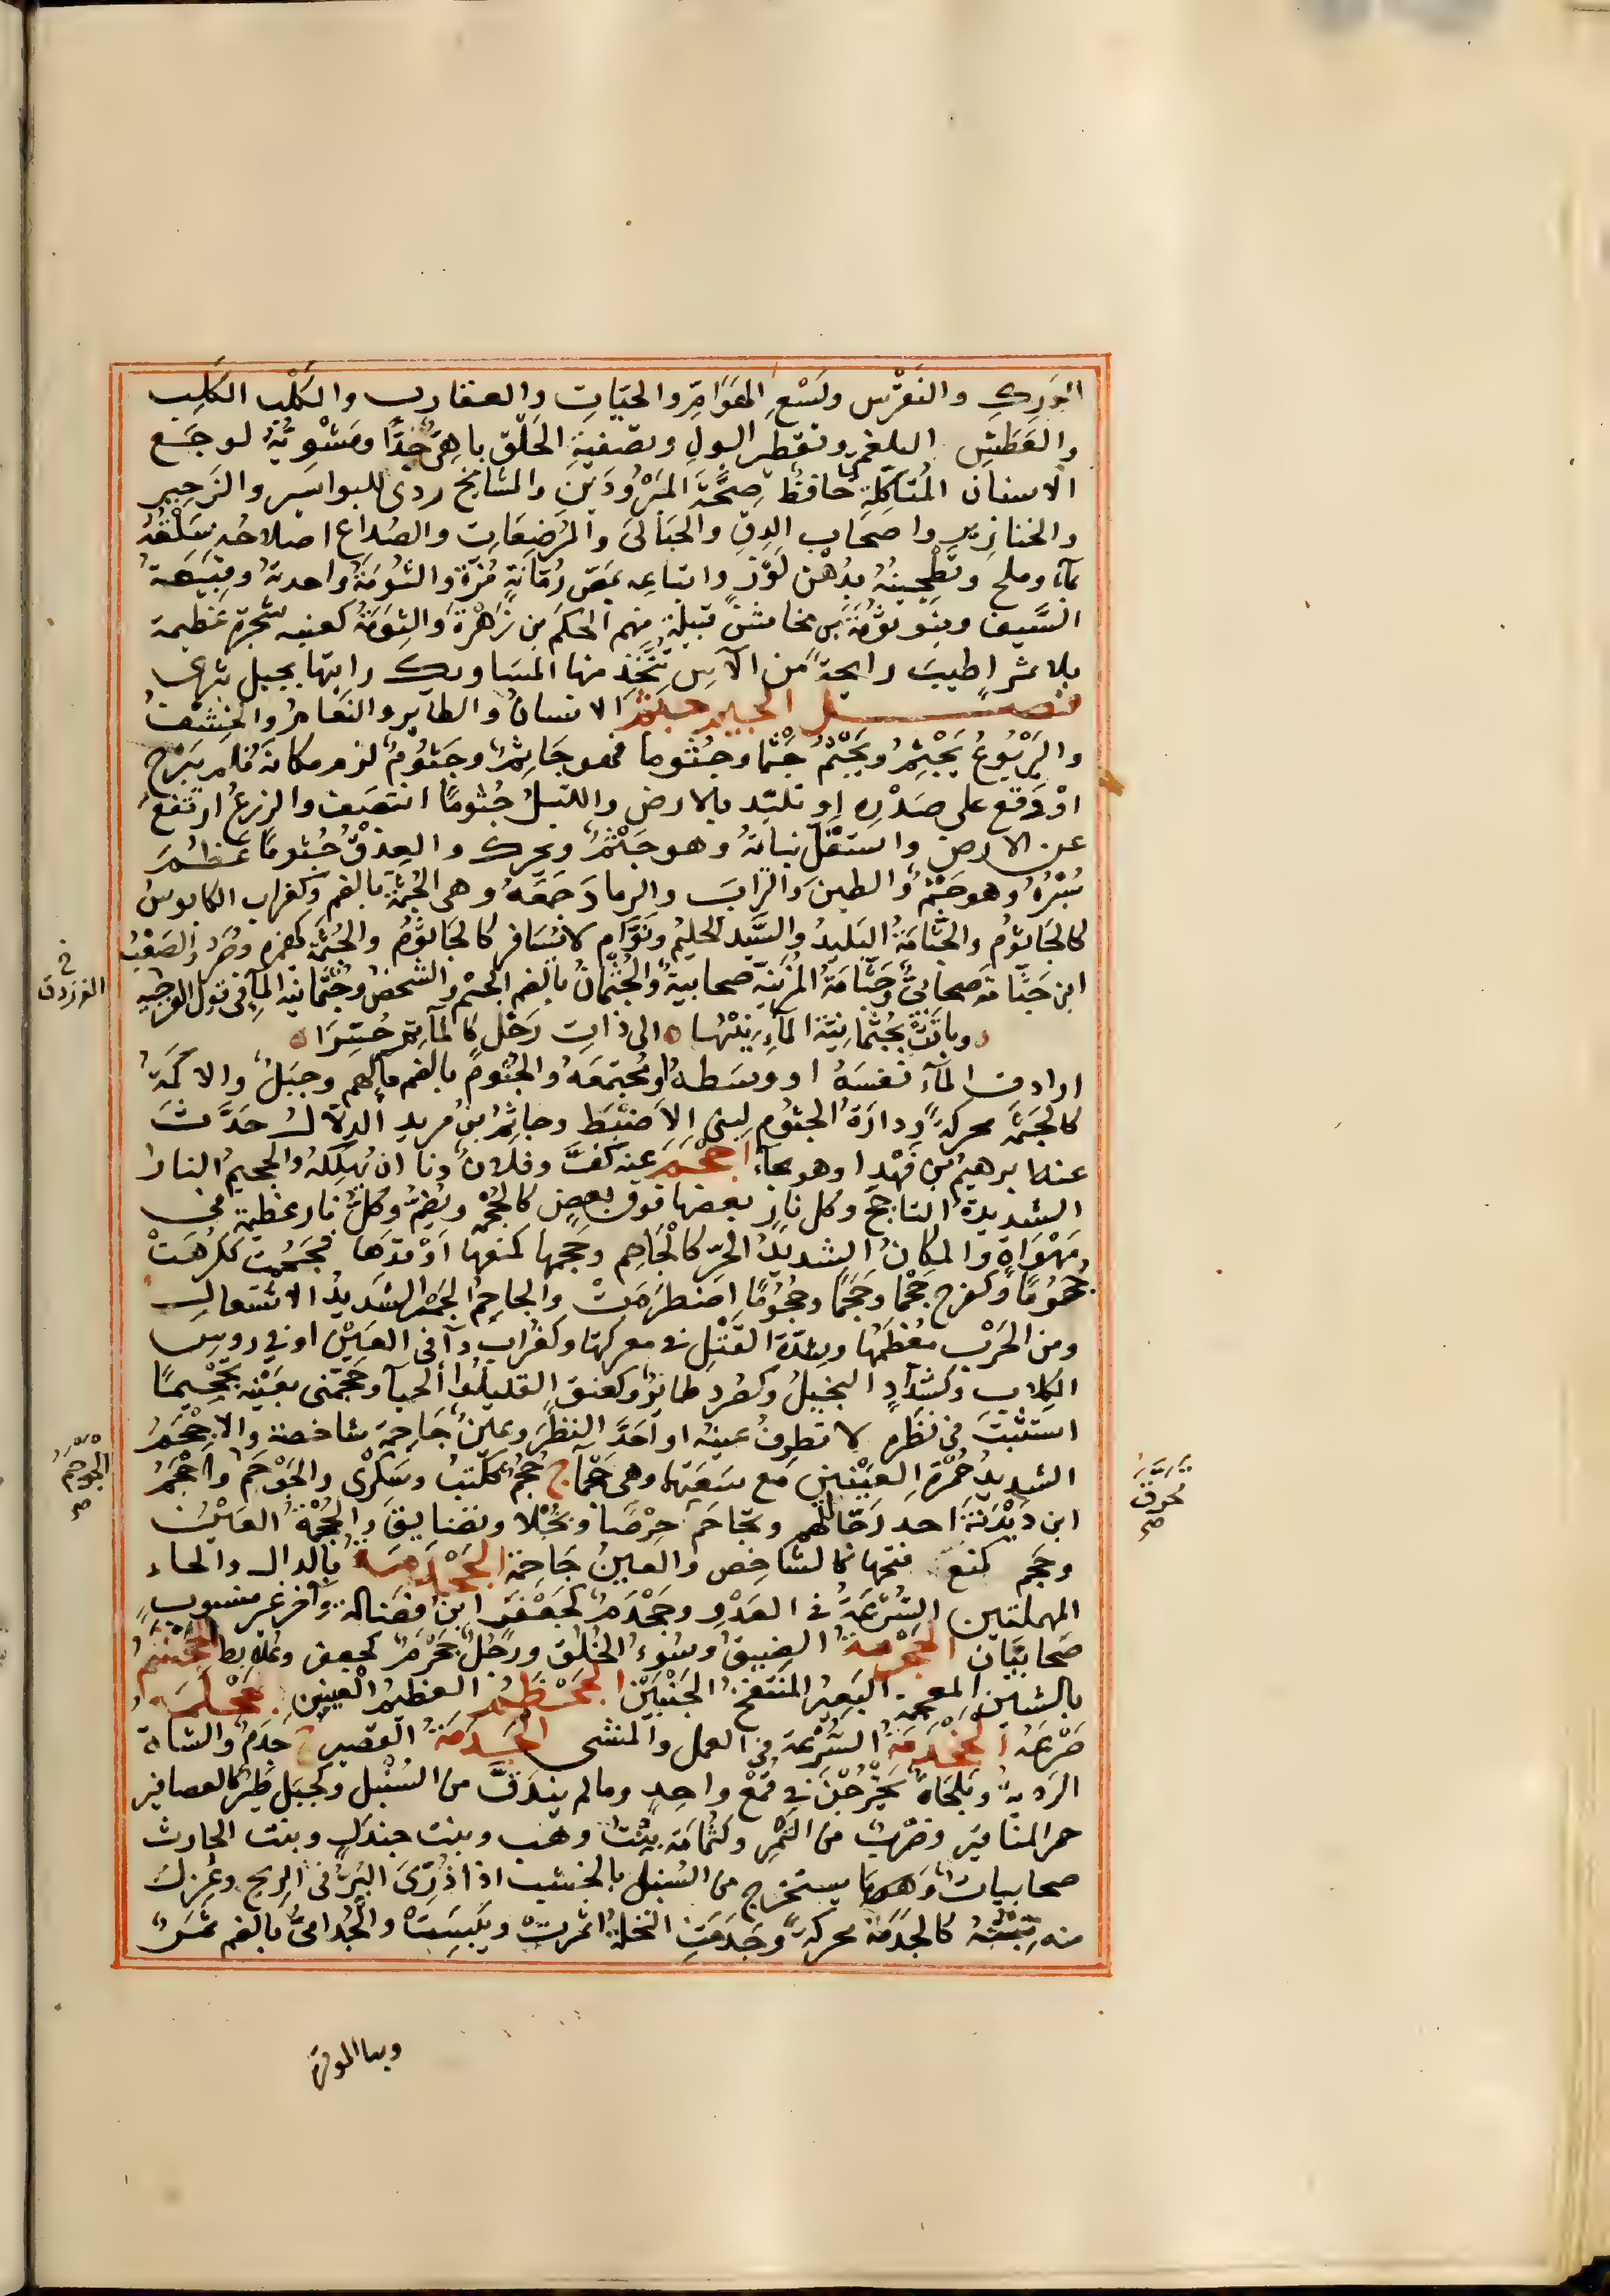 الوَرِكِ والنَقْرَس ولَسْعِ الهَوَامِّ والحيّاتِ والعقارب والكَلْب الكَلِب
والعَطَشِ البلغمي وتقطير البولِ وتصفيةِ الحَلْق باهِىٌّ جِدًّا ومَشْوِيُّهُ لوجَع
الاسنان المُتَأكِّلَةِ حافظُ صِحَّةَ المَبْرُودَين والمشايخ ردى للبواسير والزَحِير
والخنازير واصحاب الدِقِّ والحَبَالَى والمُرْضِعَاتِ والصُداعِ اصلاحُه سَلْقُهُ
بمآء وملح وتَطْجِينُهُ بدُهْن لَوْز واتباعه بمَصّ رُمّانَةٍ مُزَّة والثُومَةُ واحدتهُ وقَبِيعَةُ
السَّيف وبنو ثُومَةَ بن مخاشن قبيلة منهم الحكَم بن زَهْرَة والثِوَمَةُ كعنبه شجرة عظيمة
بلا ثمر اطيبُ رايحةً من الآس تُتَّخذ منها المسَاويك رايتها بجبل تيرى
فصل الجيم جَثَمَ الانسانُ والطآير والنَعَامُ والخِشْفُ
واليَرْبُوعُ يَجْثِمُ ويَجْثُمُ جَثْمًا وجُثُوما فهو جَاثِمٌ وجَثُومٌ لزم مكانَهُ فلم يَبْرح
اوْ وَقَع على صَدْرِه او تلبّد بالارض والليلُ جُثُومًا انتصَف والزرعُ ارتفع
عن الارض واستقلّ نباتُهُ وهو جَثْمٌ ويحرك والعِذْقُ جُثُوماً عَظُمَ
بُسْرُهُ وهو جَثْمٌ والطينَ والترابَ والرمادَ جَمَعَهُ وهى الجُثْمَةُ بالضم وكغراب الكابوسُ
كالجَاثُوم والجَثّامَةُ البَليدُ والسَّيّد الحليمُ ونَوَّام لا يُسَافر كالجَاثُوم والجُثَمَةِ كهمزه وصُرَد والصَعْبُ
ابن جَثّامَةَ صحابىٌّ وجَثّامَةُ المُزَنِيّة صحابيةٌ والجُثْمَانُ بالضم الجسْم والشخصُ وجُثْمانيَّة المآء فى قول الفرزدق
وباتَتْ بجُثْمَانيَّة المآء نِيْبُهَا الى ذاتِ رَحْل كالمآتم حُسّرَا
اراد من المآء نفسَهُ او وسَطهُ او مُجتمَعَهُ والجُثُومُ بالضم مآء لهم وجبَلٌ والاكمَةُ
كالجَثَمة محركةً ودارَةُ الجثُوم لبنى الاضبَط وجاثِمُ بن مريد الدلاّل حَدَّثَ
عنه ابرهيم بن فَهْد وهو بحآء اجْحَمَ عنه كَفَّ وفلانٌ دنا ان يُهْلِكَهُ والجحيمُ النار
الشديدة التاجج وكل نارٍ بعضها فوق بعض كالجُحْمَة ويُضَمّ وكلُّ نار عظيمةٍ فى
مَهْوَاةٍ والمكانُ الشديدُ الحَرّ كالجَاحِم وجَحَمها كمنعها اوْقدَهَا فجَحُمَت ككرُمَتْ
جُحُومًا وكفرح جَحْمًا وجَحَمًا وجُحُومًا اضطرَمَتْ والجاحِمُ الجَمْر الشديدُ الاشتعال
ومن الحَرْب مُعْظَمُها وشدّة القَتْل فى معركتها وكغُراب دآء فى العَيْن او فى روس
الكلاب وكشَدَّادٍ البخيلُ وكصُرد طائر وكعنق القليلُوا الحيآء وجَحَّمَنى بعَيْنِه تَجْحِيمًا
استثبتَ فى نظره لا تطرفُ عينه او احَدَّ النظرَ وعينٌ جَاحِمَة شاخصة والاجْحَمُ
الشديدُ حُمْرَةِ العَيْنَين مع سَعَتِهَا وهى جَحْمآء ج جُحْمٌ ككُتْب وسَكْرَى والجَوْحَمُ واجْحَمُ
ابن دَنْدَنَةَ احد رجَالهم وتجَاحَمَ حِرْصًا وبُخْلًا وتضايقَ والجُحْمَةُ العَيْن
وجحم كمنع فتحها كالشاخص والعينُ جَاحمة الجَحْدَمَة بالدال والحاء
المهملتين السُرْعَةُ فى العَدْوِ وجَحْدَمٌ كجَعْفَر ابن فضالة وآخر غير منسوبٍ
صَحابيَّان الجَحْرَمَةُ الضيقُ وسُوءُ الخُلُق ورَجُلٌ جَحْرَمٌ كجعفر وعُلابط الجَحْشَمُ
بالشين المعجمة البَعِيرُ المُنتَفخُ الجَنْبَيْن الجَحْظَمُ العظيم العَينين جَحْلَمَهُ
صَرَعَهُ الجَخْدَمَةُ السُرْعَةُ فى العمل والمشى الجَدَمَةُ القصير ج جَدَمٌ والشاة
الرديةُ وبَلَحَاةٌ يَخْرُجْنَ فى قُمْع واحدٍ وما لم يندَقّ من السُنْبُل وكجَبَل طَيرٌ كالعصافير
حمر المناقير وضرْبٌ من التَّمْر وكثُمامَة بِنْتُ وهب وبنت جندلٍ وبنت الحارث
صحابياتٌ وهو ما يستخرج من السُنبُل بالخشب اذا ذُرِّىَ البُرُّ فى الريح وعُزِلَ
منه تِبْنُهُ كالجَدَمَة محركةً وجَدَمَتِ النخلةُ اثمرت ويَبِسَتْ والجُدامىُّ بالضم تمْرٌ
الفرزدق
الجَوْحَمُ
صح
محرف
صح